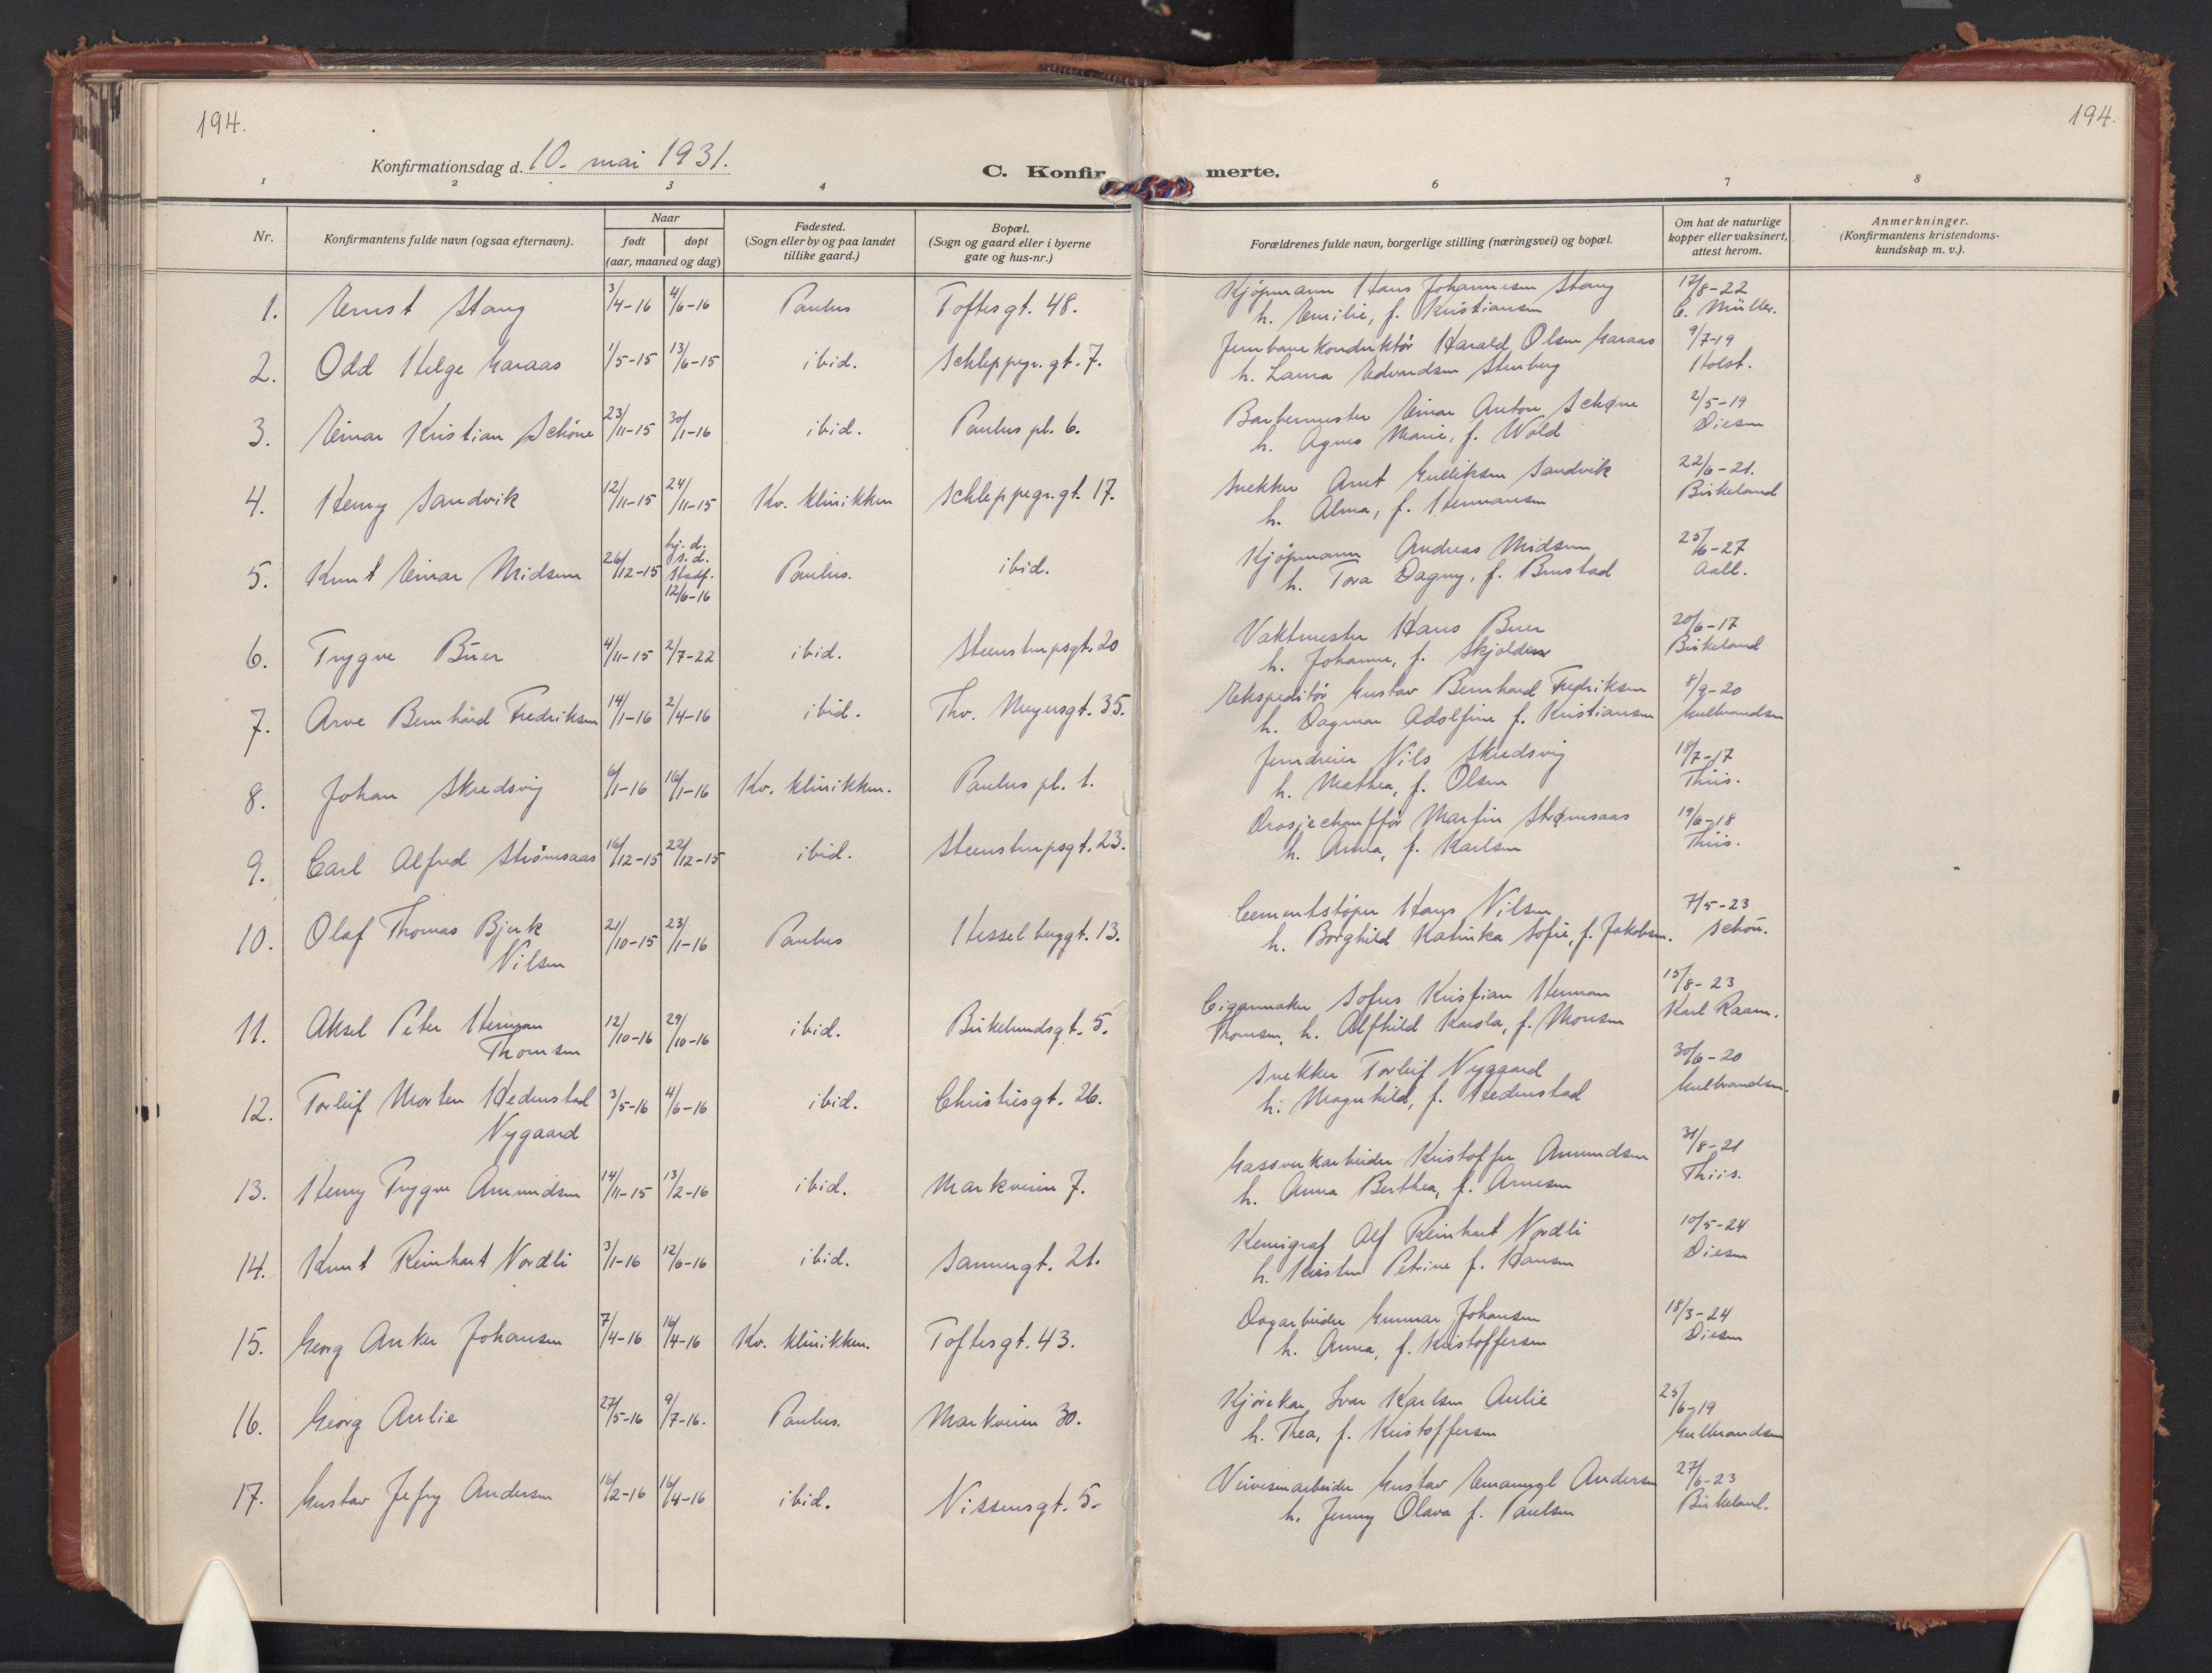 194.
194.
Konfirmationsdag d. 10. mai 1931.
C. Konfirmerte.
1 2 3 4 6 7 8
Nr.
Konfirmantens fulde navn (ogsaa efternavn).
Naar
født døpt
(aar, maaned og dag)
Fødested.
(Sogn eller by og paa landet
tillike gaard.)
Bopæl.
(Sogn og gaard eller i byerne
gate og hus-nr.)
Forældrenes fulde navn, borgerlige stilling (næringsvei) og bopæl.
Om hat de naturlige
kopper eller vaksinert,
attest herom.
Anmerkninger.
(Konfirmantens kristendoms-
kundskap m. v.).
1. Ernst Stang 3/4-16 4/6-16 Paulus Toftesgt. 48.
Kjøpmann Hans Johannesen Stang 12/8-22
h. Emilie, f. Kristiansen C. Müller.
2. Odd Helge Garaas 1/5-15 13/6-15 ibid. Schleppegr. gt. 7.
Jernbanekonduktör Harald Olsen Garaas 9/7-19
h. Laura Edvardsen Stenberg Holst.
3. Einar Kristian Schöne 23/11-15 30/1-16 ibid. Paulus pl. 6.
Barbermester Einar Anton Schøne 2/5-19
h. Agnes Marie, f. Wold Diesen
4. Henry Sandvik 12/11-15 24/11-15 Kv. klinikken Schleppegr. gt. 17.
Snekker Arnt Gulliksen Sandvik 22/6-21.
h. Alma, f. Hermansen Birkeland
5. Knut Einar Midsem 26/12-15 hj. d. s. d. stadf. 12/6-16 Paulus. ibid.
Kjöpmann Andreas Midsem 25/6-27
h. Tora Dagny, f. Bustad Aall.
6. Trygve Buer 4/11-15 2/7-22 ibid. Steenstrupsgt. 20
Vaktmester Hans Buer 20/6-17
h. Johanne, f. Skjolden Birkeland
7. Arve Bernhard Fredriksen 14/1-16 2/4-16 ibid. Thv. Meyersgt. 35.
Ekspeditör Gustav Bernhard Fredriksen 8/9-20
h. Dagmar Adolfine f. Kristiansen Gulbrandsen
8. Johan Skredsvig 6/1-16 16/1-16 Kv. klinikken. Paulus pl. 1.
Jerndreier Nils Skredsvig 18/7-17
h. Mathea, f. Olsen Thiis.
9. Carl Alfred Strömsaas 16/12-15 22/12-15 ibid. Steenstrupsgt. 23.
Drosjechaufför Martin Strømsaas 19/6-18
h. Anna, f. Karlsen Thiis.
10. Olaf Thomas Bjerk 21/10-15 23/1-16 Paulus Hesselberggt. 13.
Nilsen
Cementstöper Hans Nilsen 7/5-23
h. Borghild Katinka Sofie, f. Jakobsen. Schön.
11. Aksel Peter Herman 12/10-16 29/10-16 ibid. Birkelundsgt. 5.
Thomsen
Cigarmaker Sofus Kristian Herman 15/8-23
Thomsen, h. Alfhild Karsla, f. Monsen Karl Raam.
12. Torleif Morten Hedenstad 3/5-16 4/6-16 ibid. Christiesgt. 26.
Nygaard
Snekker Torleif Nygaard 30/6-20
h. Magnhild, f. Hedenstad Gulbrandsen.
13. Henry Trygve Amundsen 14/11-15 13/2-16 ibid. Markveien 7.
Gassverkarbeider Kristoffer Amundsen 31/8-21
h. Anna Berthea, f. Arnesen Thiis.
14. Knut Reinhart Nordli 3/1-16 12/6-16 ibid. Sannergt. 21.
Kemigraf Alf Reinhart Nordli 10/5-24
h. Kirsten Petrine f. Hansen Diesen
15. Georg Anker Johansen 7/4-16 16/4-16 Kv. klinikken. Toftesgt. 43.
Dagarbeider Gunnar Johansen 18/3-24
h. Anna, f. Kristoffersen Diesen
16. Georg Aulie 27/5-16 9/7-16. Paulus. Markveien 30.
Kjörekar Ivar Karlsen Aulie 25/6-19
h. Thea, f. Kristoffersen Gulbrandsen
17. Gustav Jefry Andersen 16/2-16 16/4-16 ibid. Nissensgt. 5.
Veivesenarbeider Gustav Emanuel Andersen 27/6-23
h. Jenny Olava f. Paulsen Birkeland.